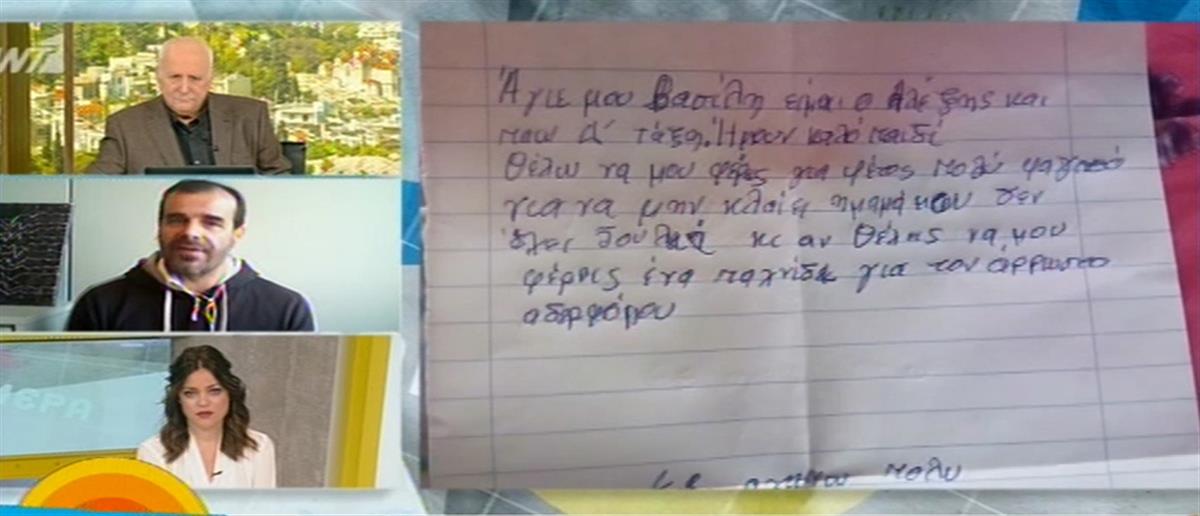 ΑΝΤ1
ΜΕΡΑ
Άγιε μου Βασίλη είμαι ο Αλέξης και
παω Α' τάξη. Ήμουν καλό παιδί
Θέλω να μου φέρις για φέτος πολύ φαγητό
για να μην κλαίει η μαμά μου δεν
έχει δουλιά κι αν θέλης να μου
φέρνις ένα παχνίδι για τον άρρωστο
αδερφόμου
πολυ